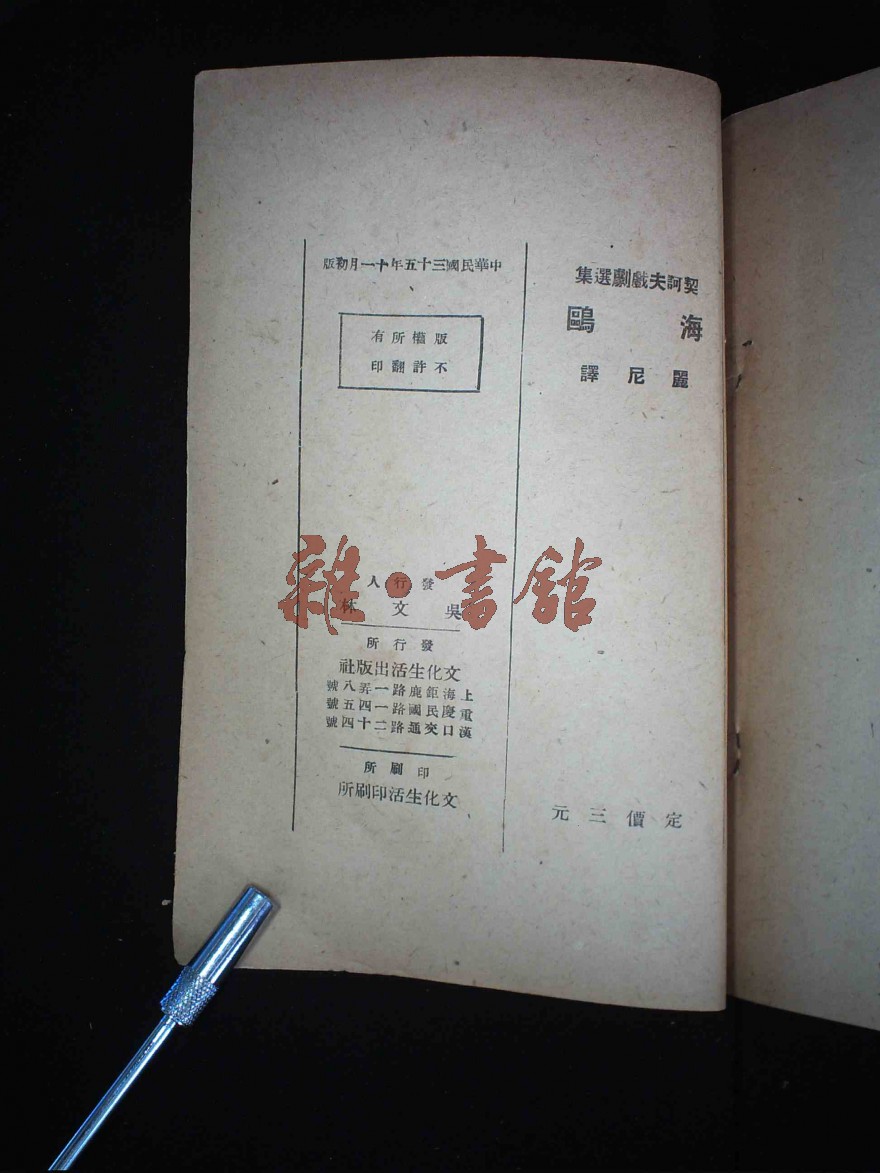 契訶夫戲劇選集
海鷗
麗尼譯
定價三元
中華民國三十五年十一月初版
版權所有
不許翻印
發行人
吳文林
發行所
文化生活出版社
上海鉅鹿路一弄八號
重慶民國路一四五號
漢口交通路二十四號
印刷所
文化生活印刷所
雜·書館